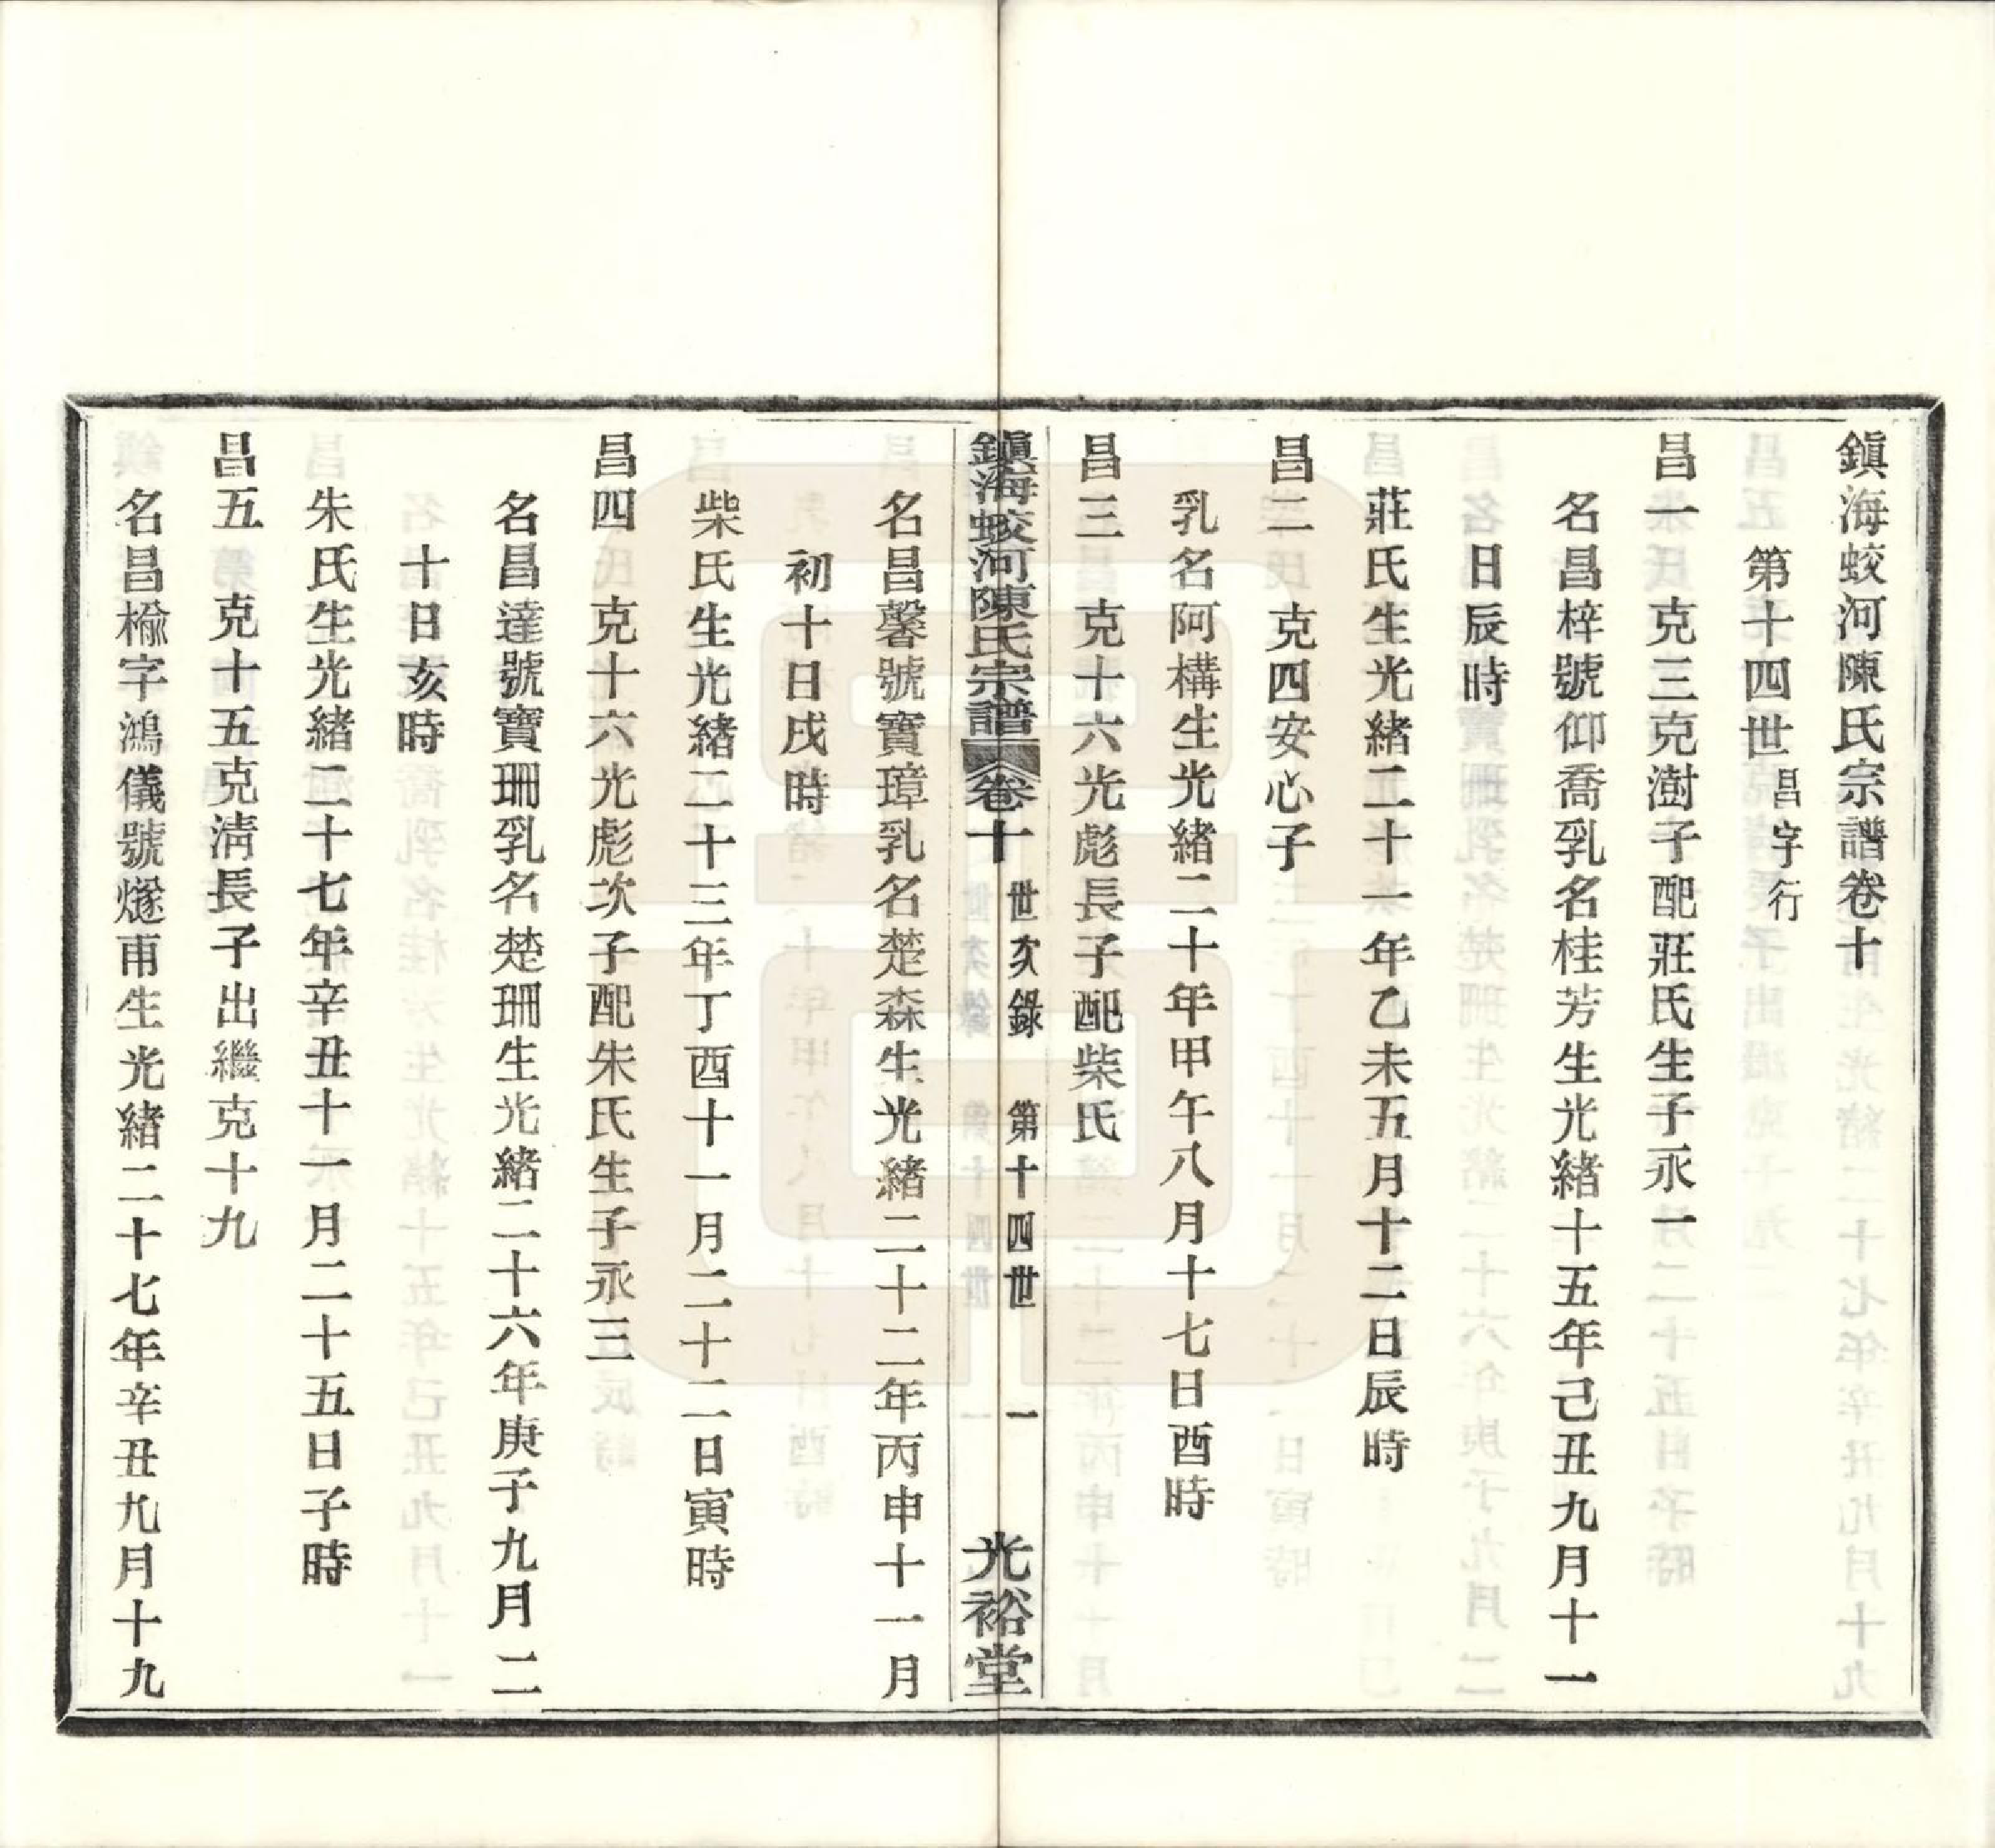 鎭海蛟河陳氏宗譜卷十
第十四世昌字行
昌一　克三克澍子配莊氏生子永一
名昌梓號仰喬乳名桂芳生光緒十五年己丑九月十一
日辰時
莊氏生光緒二十一年乙未五月十二日辰時
昌二　克四安心子
乳名阿構生光緒二十年甲午八月十七日酉時
昌三　克十六光彪長子配柴氏
鎭海蛟河陳氏宗譜　卷十　世次錄　第十四世　一　光裕堂
名昌馨號寶璋乳名楚森生光緒二十二年丙申十一月
初十日戌時
柴氏生光緒二十三年丁酉十一月二十二日寅時
昌四　克十六光彪次子配朱氏生子永三
名昌達號寶珊乳名楚珊生光緒二十六年庚子九月二
十日亥時
朱氏生光緒二十七年辛丑十一月二十五日子時
昌五　克十五克淸長子出繼克十九
名昌楡字鴻儀號燧甫生光緒二十七年辛丑九月十九